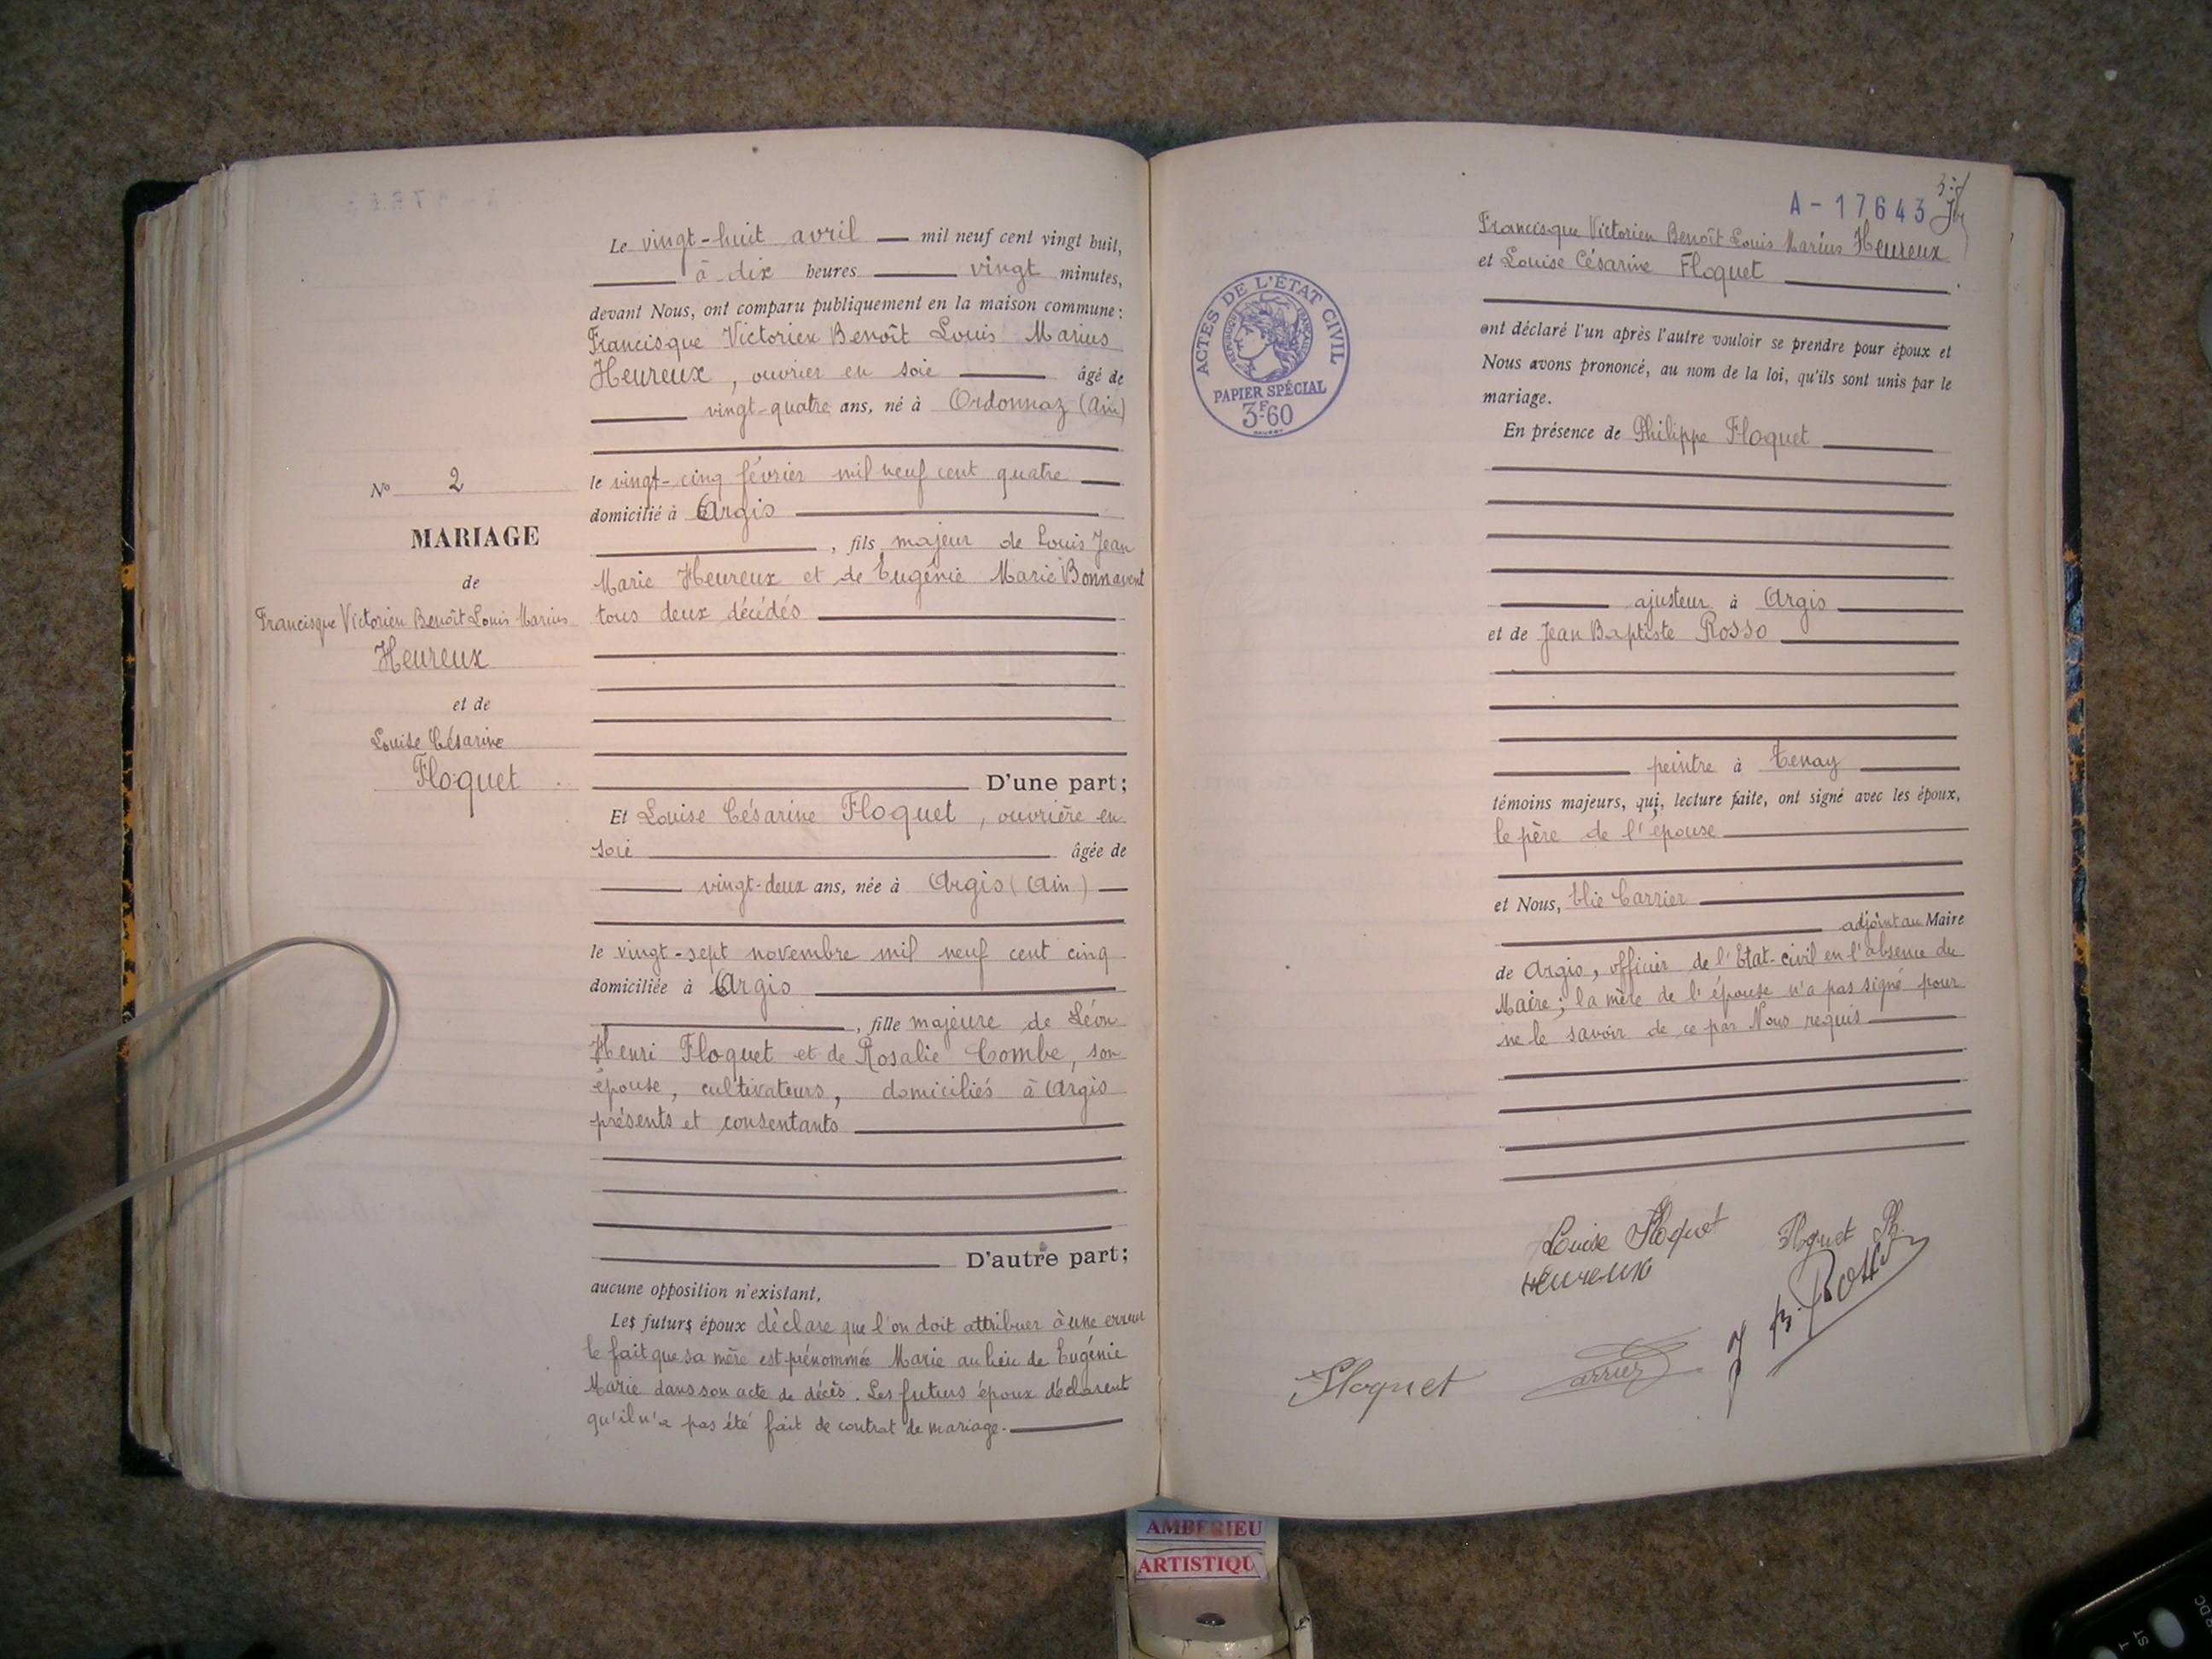 Le vingt-huit avril mil neuf cent vingt huit,
à dix heures vingt minutes,
devant Nous, ont comparu publiquement en la maison commune :
Francisque Victorien Benoît Louis Marius
Heureux, ouvrier en soie âgé de
vingt-quatre ans, né à Ordonnaz (Ain)
le vingt-cinq février mil neuf cent quatre
domicilié à Argis
, fils majeur de Louis Jean
Marie Heureux et de Eugénie Marie Bonnavent
tous deux décédés
D'une part;
Et Louise Césarine Floquet, ouvrière en
soie âgée de
vingt-deux ans, née à Argis (Ain)
le vingt-sept novembre mil neuf cent cinq
domiciliée à Argis
, fille majeure de Léon
Henri Floquet et de Rosalie Combe, son
épouse, cultivateurs, domiciliés à Argis
présents et consentants
D'autre part;
aucune opposition n'existant,
Les futurs époux déclare que l'on doit attribuer à une erreur
le fait que sa mère est prénommée Marie au lieu de Eugénie
Marie dans son acte de décès. Les futurs époux déclarent
qu'il n'a pas été fait de contrat de mariage.
No 2
MARIAGE
de
Francisque Victorien Benoît Louis Marius
Heureux
et de
Louise Césarine
Floquet
A-17643
Francisque Victorien Benoît Louis Marius Heureux
et Louise Césarine Floquet
ont déclaré l'un après l'autre vouloir se prendre pour époux et
Nous avons prononcé, au nom de la loi, qu'ils sont unis par le
mariage.
En présence de Philippe Floquet
ajusteur à Argis
et de Jean Baptiste Rosso
peintre à Tenay
témoins majeurs, qui, lecture faite, ont signé avec les époux,
le père de l'épouse
et Nous, Elie Carrier
adjoint au Maire
de Argis, officier de l'Etat-civil en l'absence du
Maire; la mère de l'épouse n'a pas signé pour
ne le savoir de ce par Nous requis
ACTES DE L'ÉTAT CIVIL
RÉPUBLIQUE FRANÇAISE
PAPIER SPÉCIAL
3F.60
Louise Floquet
Floquet Ph.
Heureux
J B. Rosso
Floquet
Carrier
AMBERIEU
ARTISTIQU